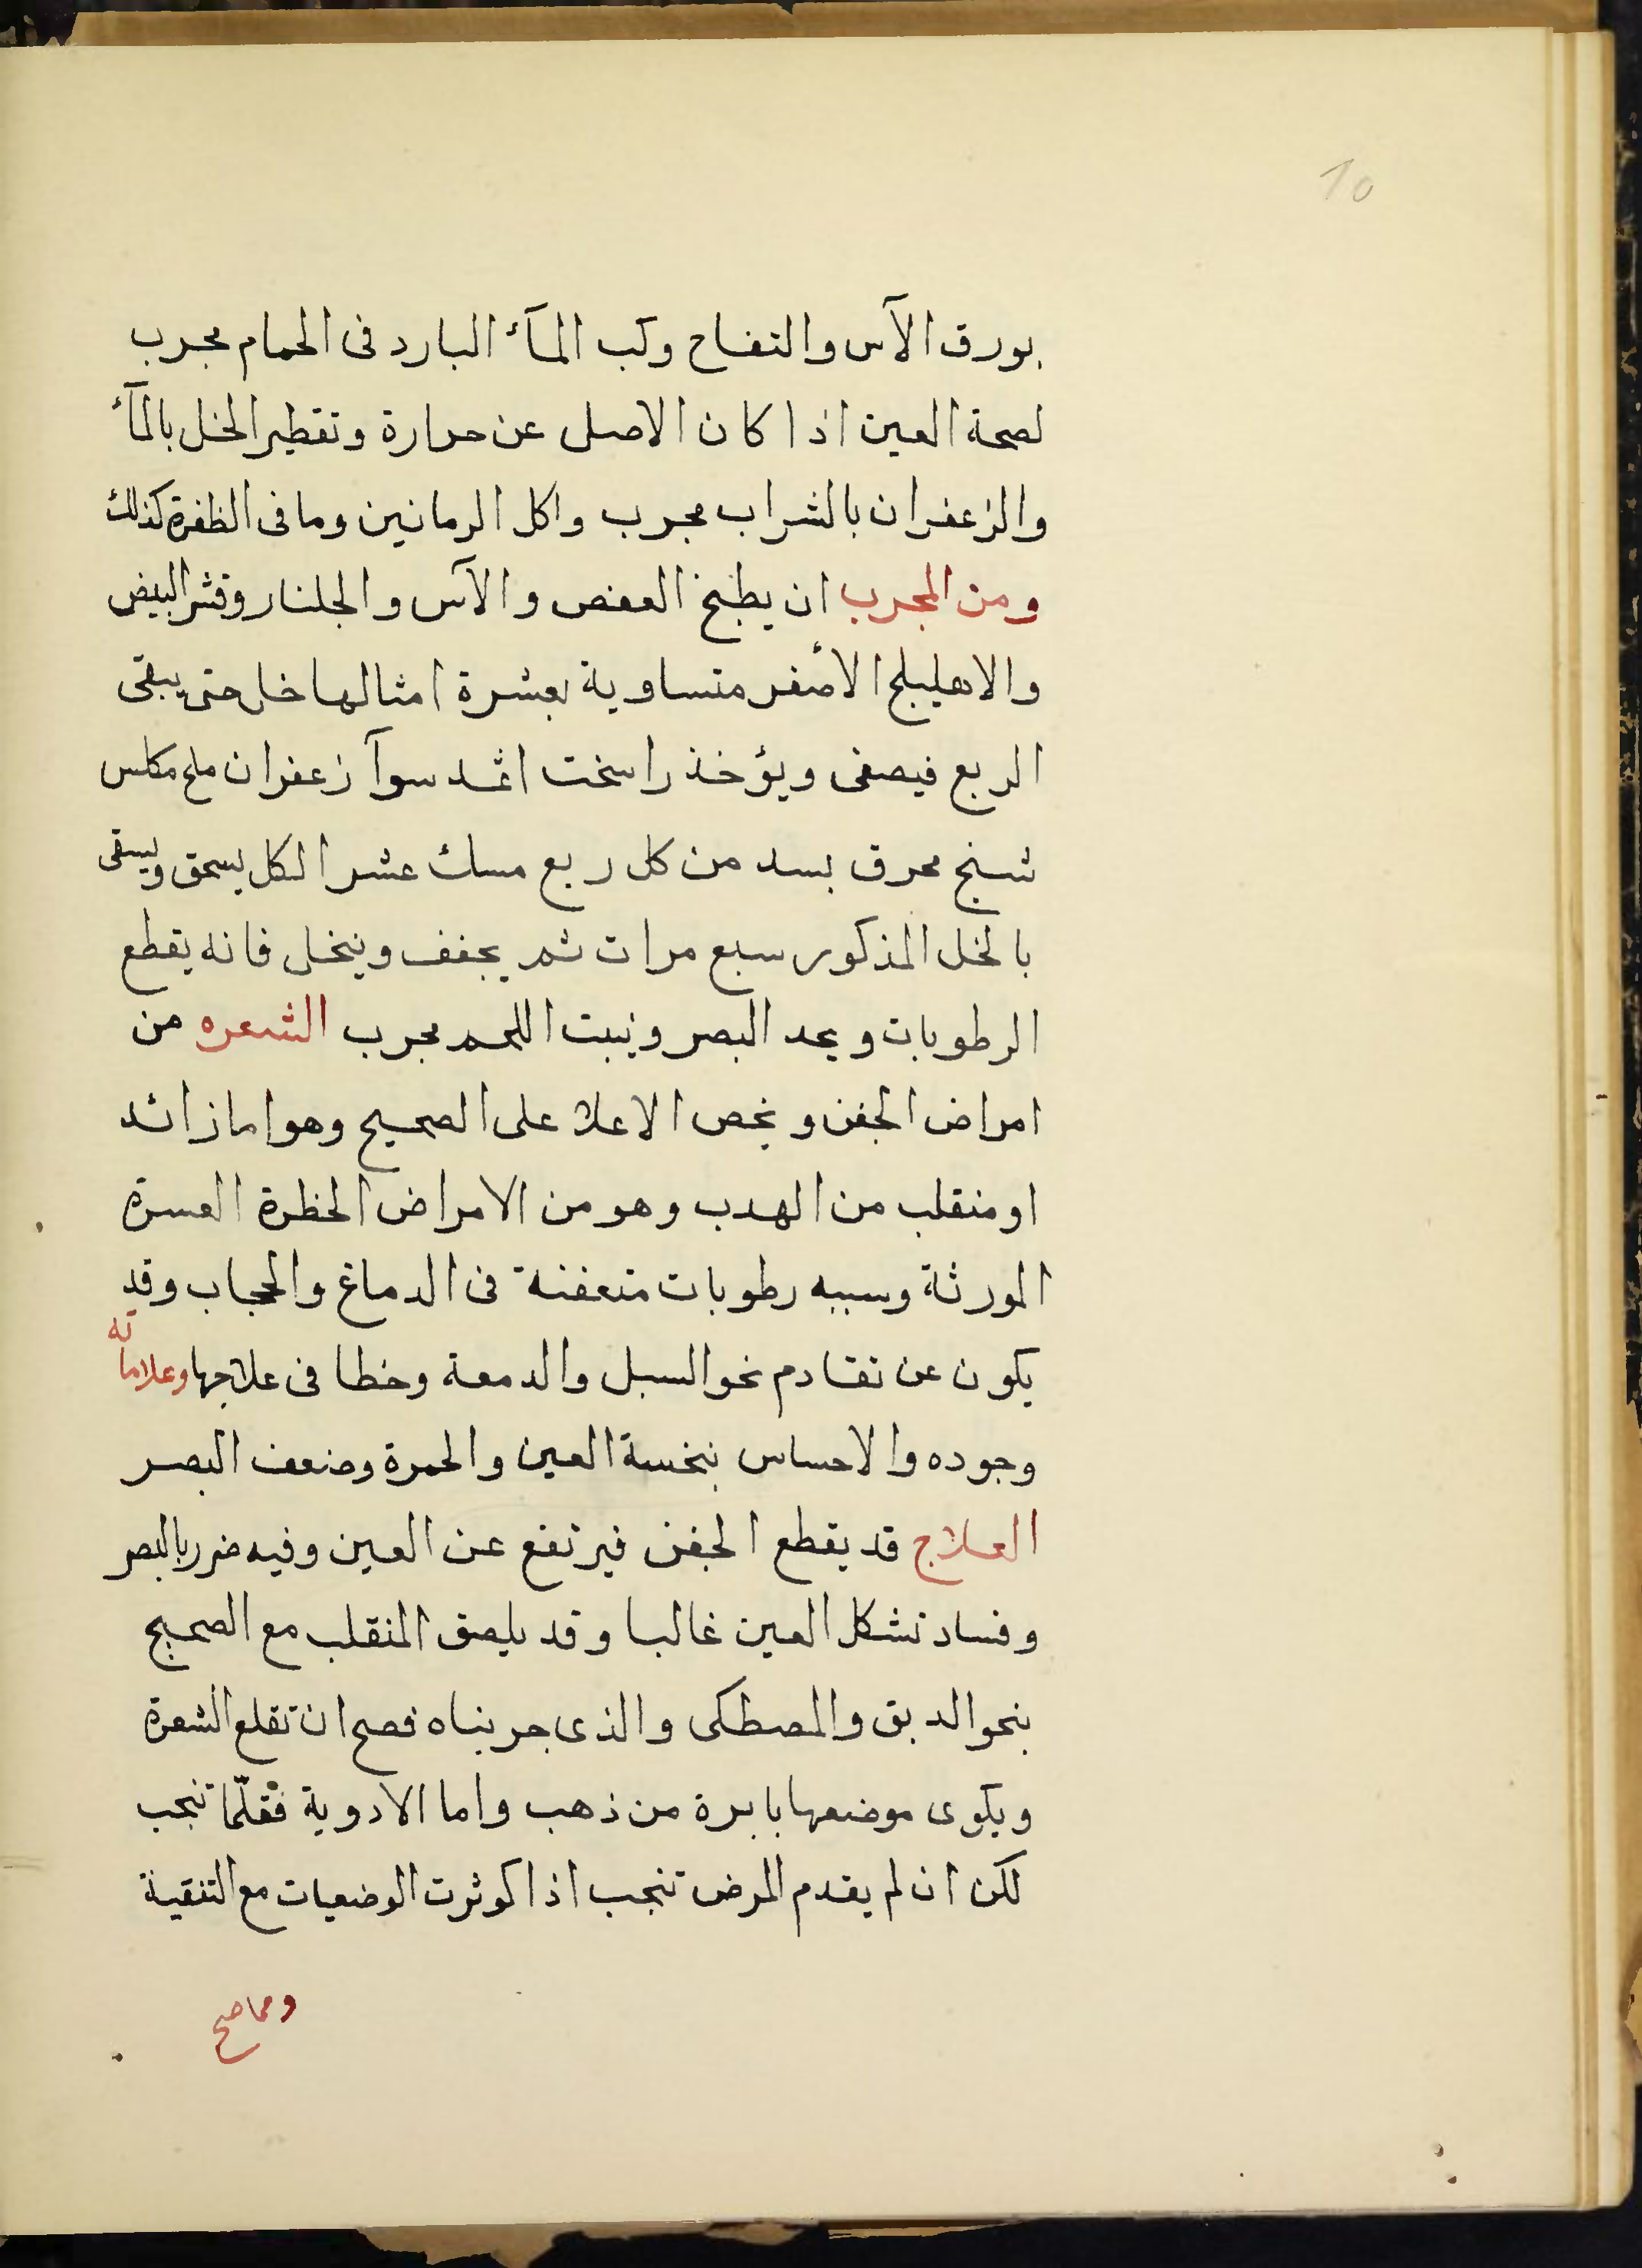 10
بورق الآس والتفاح وكب المآء البارد فى الحمام مجرب
لصحة العين اذا كان الاصل عن حرارة وتقطير الخل بالمآء
والزعفران بالشراب مجرب واكل الرمانين وما فى الظفرة كذلك
ومن المجرب ان يطبخ العفص والآس والجلنار وقشر البيض
والاهليلج الأصفر متساوية بعشرة امثالها خل حتى يبقى
الربع فيصفى ويؤخذ راسخت اثمد سوآ زعفران ملح مكلس
شنج محرق بسد من كل ربع مسك عشر الكل يسحق ويسقى
بالخل المذكور سبع مرات ثم يجفف وينخل فانه يقطع
الرطوبات ويحد البصر وينبت اللحم مجرب الشعره من
امراض الجفن ويخص الاعلا على الصحيح وهو اما زائد
او منقلب من الهدب وهو من الامراض الخطرة العسرة
المورثة وسببه رطوبات متعفنة فى الدماغ والحجاب وقد
يكون عن تقادم نحو السبل والدمعة وخطا فى علاجها وعلاماته
وجوده والاحساس بنخسة العين والحمرة وضعف البصر
العلاج قد يقطع الجفن فيرتفع عن العين وفيه ضرر بالبصر
وفساد تشكل العين غالبا وقد يلصق المنقلب مع الصحيح
بنحو الدبق والمصطكى والذى جربناه فصح ان تقلع الشعرة
ويكوى موضعها بابرة من ذهب واما الادوية فقلّما تنجب
لكن ان لم يقدم المرض تنجب اذا كوثرت الوضعيات مع التنقية
ومما صح